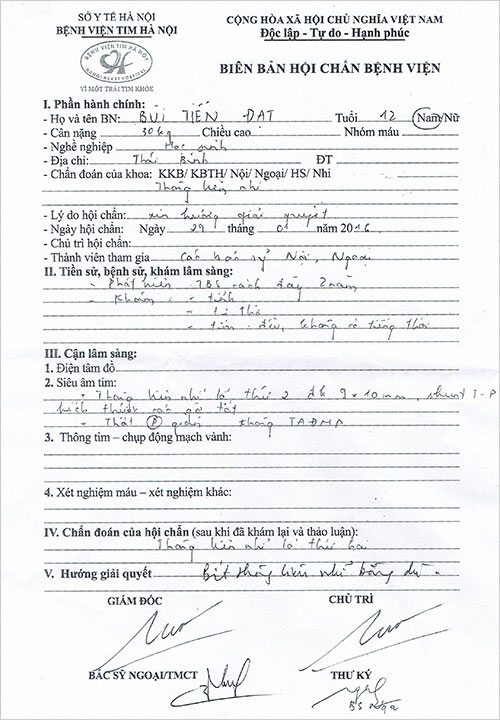 SỞ Y TẾ HÀ NỘI
BỆNH VIỆN TIM HÀ NỘI
BỆNH VIỆN TIM HÀ NỘI
HANOI HEART HOSPITAL
VÌ MỘT TRÁI TIM KHỎE
CỘNG HÒA XÃ HỘI CHỦ NGHĨA VIỆT NAM
Độc lập - Tự do - Hạnh phúc
BIÊN BẢN HỘI CHẨN BỆNH VIỆN
I. Phần hành chính:
- Họ và tên BN: BÙI TIẾN ĐẠT Tuổi 12 Nam/Nữ
- Cân nặng 30kg Chiều cao Nhóm máu
- Nghề nghiệp Học sinh
- Địa chỉ: Thái Bình ĐT
- Chẩn đoán của khoa: KKB/ KBTH/ Nội/ Ngoại/ HS/ Nhi
Thông liên nhĩ
- Lý do hội chẩn: xin hướng giải quyết
- Ngày hội chẩn: Ngày 29 tháng năm 2016
- Chủ trì hội chẩn:
- Thành viên tham gia Các bác sỹ Nội, Ngoại
II. Tiền sử, bệnh sử, khám lâm sàng:
- Phát hiện TBS cách đây 2 năm
- Khám: - tỉnh
- tim đều, không có tiếng thổi
III. Cận lâm sàng:
1. Điện tâm đồ
2. Siêu âm tim:
- Thông liên nhĩ lỗ thứ 2 đk 9 x 10 mm, shunt T-P
kích thước các gờ tốt
- Thất P giãn không TAĐMP
3. Thông tim – chụp động mạch vành:
4. Xét nghiệm máu – xét nghiệm khác:
IV. Chẩn đoán của hội chẩn (sau khi đã khám lại và thảo luận):
Thông liên nhĩ lỗ thứ hai
V. Hướng giải quyết Bít thông liên nhĩ bằng dù
GIÁM ĐỐC CHỦ TRÌ
BÁC SỸ NGOẠI/TMCT THƯ KÝ
BS Nga